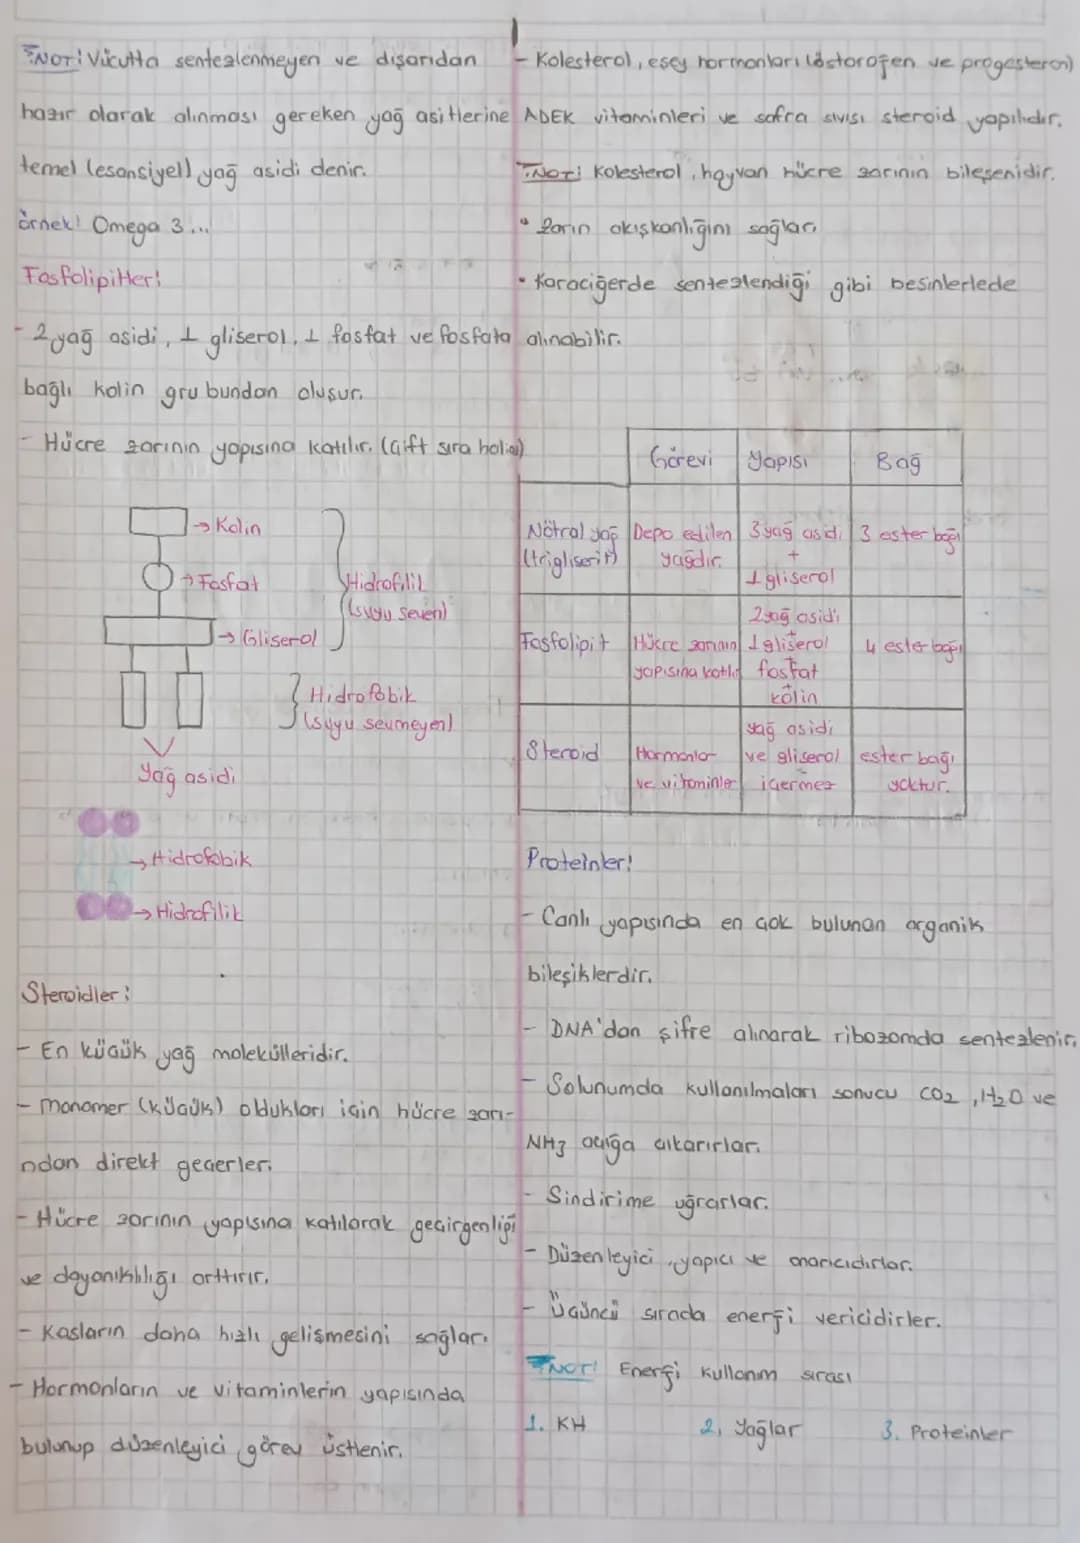 NOT! Vücutta sentezlenmeyen ve dışarıdan
hazır olarak alınması gereken yağ asitlerine
temel (esansiyel) yağ asidi denir.
örnek! Omega 3...
Fosfolipitler!
- 2 yağ asidi, 1 gliserol, 1 fosfat ve fosfata
bağlı kolin grubundan oluşur.
- Hücre zarının yapısına katılır. (Çift sıra halinde)
→ Kolin
→ Fosfat
→ Gliserol
Hidrofilik
(suyu seven)
Hidrofobik
(suyu sevmeyen)
Yağ asidi
→ Hidrofobik
→ Hidrofilik
Steroidler:
- En küçük yağ molekülleridir.
- Monomer (küçük) oldukları için hücre zarı-
ndan direkt geçerler.
- Hücre zarının yapısına katılarak geçirgenliği
ve dayanıklılığı arttırır.
- Kasların daha hızlı gelişmesini sağlar.
- Hormonların ve vitaminlerin yapısında
bulunup düzenleyici görev üstlenir.
- Kolesterol, eşey hormonları (östorojen ve progesteron)
ADEK vitaminleri ve safra sıvısı steroid yapılıdır.
NOT! Kolesterol, hayvan hücre zarının bileşenidir.
• Zarın akışkanlığını sağlar.
• Karaciğerde sentezlendiği gibi besinlerlede
alınabilir.
Görevi Yapısı Bağ
Nötral yağ (trigliserit) Depo edilen yağdır. 3 yağ asidi + 1 gliserol 3 ester bağı
Fosfolipit Hücre zarının yapısına katılır 2 yağ asidi + 1 gliserol + fosfat + kolin 4 ester bağı
Steroid Hormonlar ve vitaminler yağ asidi ve gliserol içermez ester bağı yoktur.
Proteinler!
- Canlı yapısında en çok bulunan organik
bileşiklerdir.
- DNA'dan şifre alınarak ribozomda sentezlenir.
- Solunumda kullanılmaları sonucu CO2, H2O ve
NH3 açığa çıkarırlar.
- Sindirime uğrarlar.
- Düzenleyici, yapıcı ve onarıcıdırlar.
- Üçüncü sırada enerji vericidirler.
NOT! Enerji kullanım sırası
1. KH 2. Yağlar 3. Proteinler